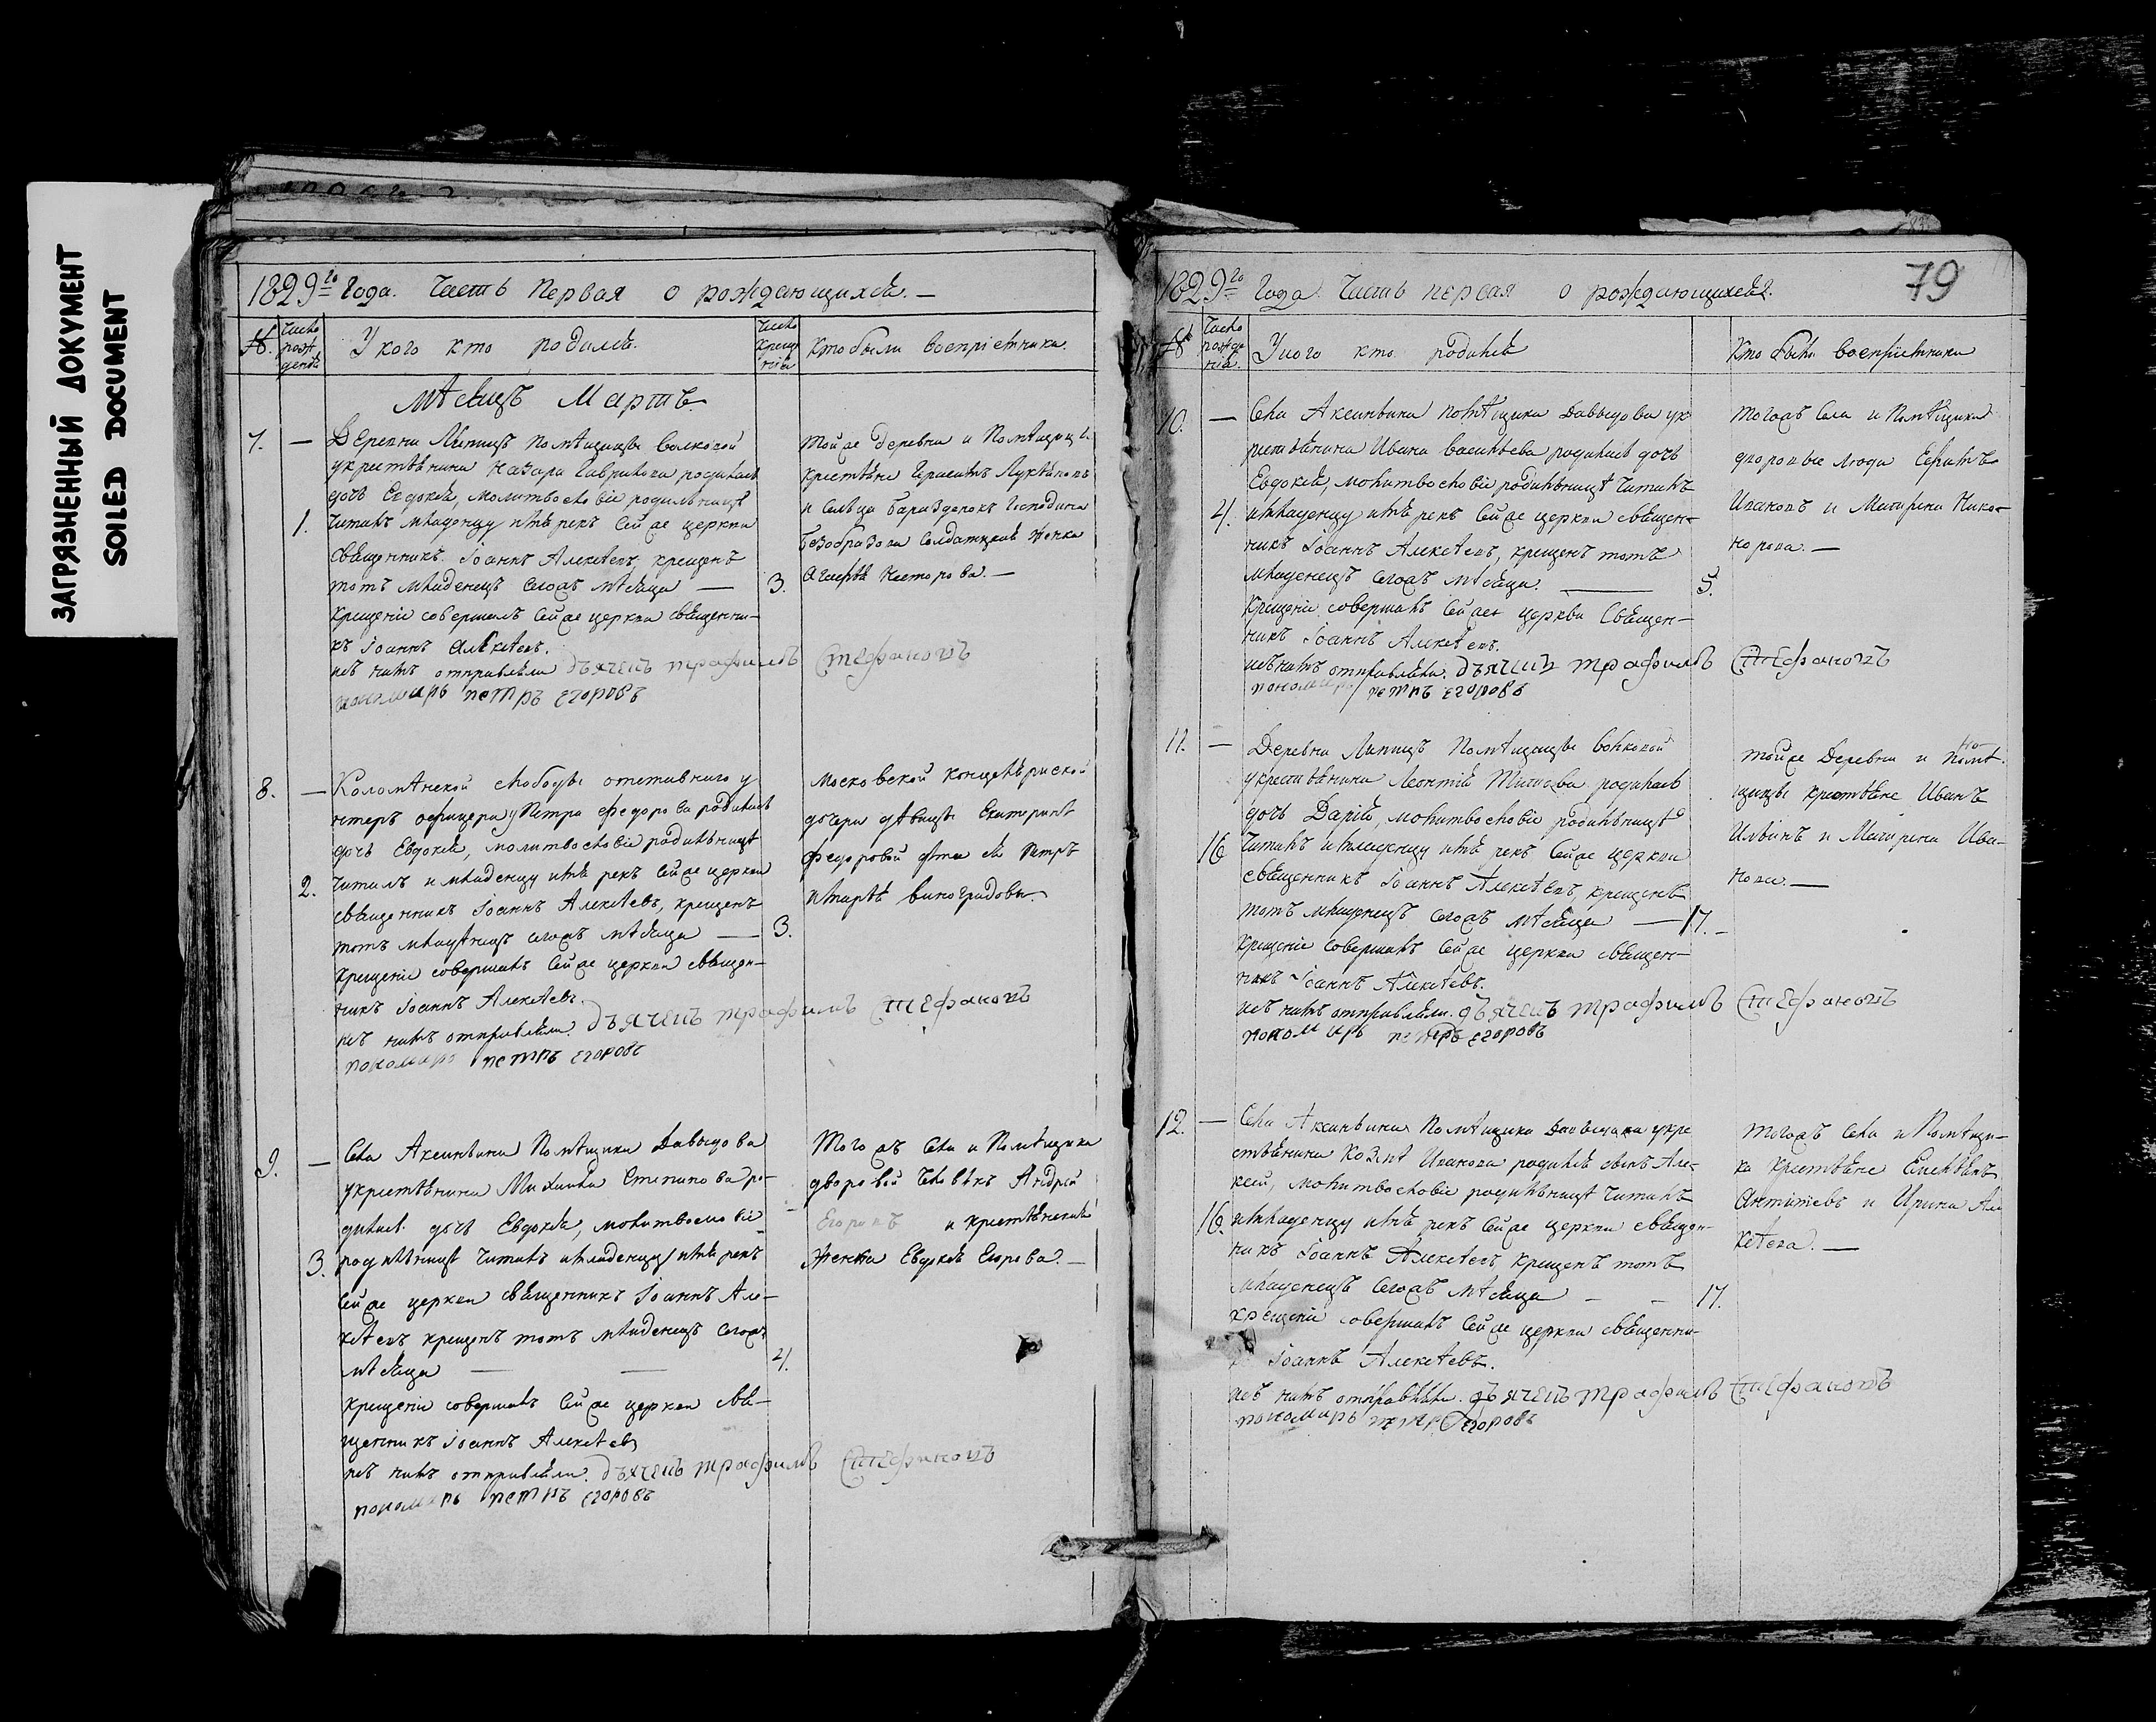 ЗАГРЯЗНЕННЫЙ ДОКУМЕНТ
SOILED DOCUMENT
1829го Года. Часть Первая о рождающихся.
№. Число рождения
У кого кто родился.
Число крещения
Кто были восприемники.
Мѣсяцъ Мартъ.
7. — Деревни Липицъ Помѣщицы Волковой
у крестьянина Назара Гаврилова родилась
дочь Евдокія, молитвословіе родильницѣ
1. читалъ младенцу имя рекъ Сей же церкви
священникъ Іоаннъ Алексѣевъ, крещенъ
тотъ младенецъ сегожъ мѣсяца — 3.
крещеніе совершалъ Сей же церкви священни-
къ Іоаннъ Алексѣевъ.
при немъ отправляли дьячекъ трафимъ Стефановъ
пономарь петръ егоровъ
Той же деревни и Помѣщицы
крестьяне Герасимъ
и Сельца господина
Безобразова Солдатская женка
Несторова. —
8. — Коломенской слободы отставного у
нтеръ офицера Петра Федорова родилась
дочь Евдокія, молитвословіе родильницѣ
2. читалъ и младенцу имя рекъ Сей же церкви
священникъ Іоаннъ Алексѣевъ, крещенъ
тотъ младенецъ сегожъ мѣсяца — 3.
крещеніе совершалъ Сей же церкви священ-
никъ Іоаннъ Алексѣевъ.
отправляли. дьячекъ трафимъ Стефановъ
пономарь петръ егоровъ
Московской
дочери дѣвицы Екатерины
Федоровой дѣти ея Петръ
Виноградовы.
9. — Села Аксиньина Помѣщика Давыдова
у крестьянина Михаила Степанова ро-
дилась дочь Евдокія, молитвословіе
3. родильницѣ читалъ и младенцу имя рекъ
Сей же церкви священникъ Іоаннъ Але-
ксѣевъ крещенъ тотъ младенецъ сегожъ
мѣсяца — — 4.
крещеніе совершалъ Сей же церкви свя-
щенникъ Іоаннъ Алексѣевъ
отправляли. дьячекъ трафимъ Стефановъ
пономарь петръ егоровъ
Того жъ Села и Помѣщика
дворовой человѣкъ Андрей
Егоровъ и крестьянская
женка Евдокія Егорова. —
1829го Года. Часть первая о рождающихся.
79
№ Число рожденія.
У кого кто родился
Кто были восприемники
10. — Села Аксиньина помѣщика Давыдова у к
рестьянина Ивана Васильева родилась дочь
Евдокія, молитвословіе родильницѣ читалъ
4. и младенцу имя рекъ Сей же церкви священ-
никъ Іоаннъ Алексѣевъ, крещенъ тотъ
младенецъ сегожъ мѣсяца. — 5.
Крещеніе совершалъ Сей же церкви Священ-
никъ Іоаннъ Алексѣевъ.
отправляли. дьячекъ трафимъ Стефановъ
пономарь петръ егоровъ
Тогожъ Села и Помѣщика
дворовые люди Ефимъ
Ивановъ и Матрена Нико-
норова. —
11. — Деревни Липицъ Помѣщицы Волковой
у крестьянина Леонтія Титова родилась
дочь Дарія, молитвословіе родильницѣ
16 читалъ и младенцу имя рекъ Сей же церкви
священникъ Іоаннъ Алексѣевъ, крещенъ
тотъ младенецъ сегожъ мѣсяца — 17.
крещеніе совершалъ Сей же церкви священ-
никъ Іоаннъ Алексѣевъ.
отправляли. дьячекъ трафимъ Стефановъ
пономарь петръ егоровъ
той же Деревни и Помѣ-
щицы крестьяне Иванъ
Ильинъ и Матрена Ива-
нова. —
12. — Села Аксиньина Помѣщика Давыдова у кре
стьянина Козмы Иванова родился сынъ Але-
ксѣй, молитвословіе родильницѣ читалъ
16. и младенцу имя рекъ Сей же церкви священ-
никъ Іоаннъ Алексѣевъ крещенъ тотъ
младенецъ сегожъ мѣсяца — — 17.
крещеніе совершалъ Сей же церкви священни-
къ Іоаннъ Алексѣевъ.
отправляли. дьячекъ трафимъ Стефановъ
пономарь петръ егоровъ
тогожъ Села и Помѣщи-
ка крестьяне
и Ирина Але
ксѣева. —